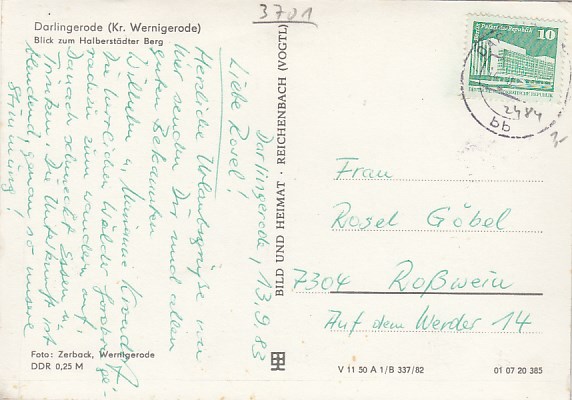 3701
Darlingerode (Kr. Wernigerode)
Blick zum Halberstädter Berg
Darlingerode, 13.9.83
Liebe Rosel!
Herzliche Urlaubsgrüße von
hier senden Dir und allen
guten Bekannten
Wilhelm u. Mimmi
Die herrlichen Wälder fordern ge-
radezu zum wandern auf.
Danach schmeckt Essen u.
Trinken. Die Unterkunft ist
blendend, genau so unsere
Stimmung!
Foto: Zerback, Wernigerode
DDR 0,25 M
BILD UND HEIMAT · REICHENBACH (VOGTL)
Palast der Republik
10
2484
bb
Frau
Rosel Göbel
7304 Roßwein
Auf dem Werder 14
V 11 50 A 1/B 337/82
01 07 20 385